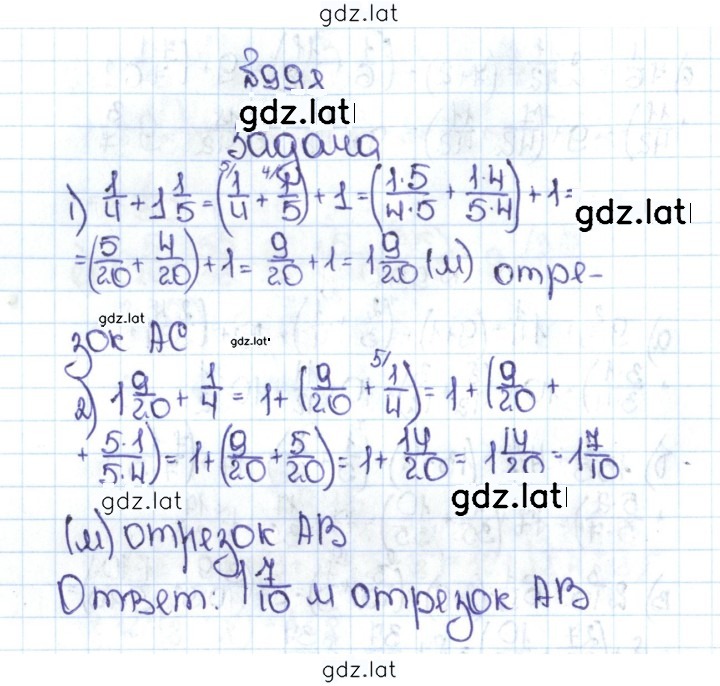 gdz.lat
№992
gdz.lat
Задача
1) 1/4 + 1 1/5 = (1/4 + 1/5) + 1 = (1·5/4·5 + 1·4/5·4) + 1 =
gdz.lat
= (5/20 + 4/20) + 1 = 9/20 + 1 = 1 9/20 (м) отре-
gdz.lat
зок АС gdz.lat
2) 1 9/20 + 1/4 = 1 + (9/20 + 5/ 1/4) = 1 + (9/20 +
+ 5·1/5·4) = 1 + (9/20 + 5/20) = 1 + 14/20 = 1 14/20 = 1 7/10
gdz.lat gdz.lat
(м) отрезок АВ
Ответ: 1 7/10 м отрезок АВ
gdz.lat